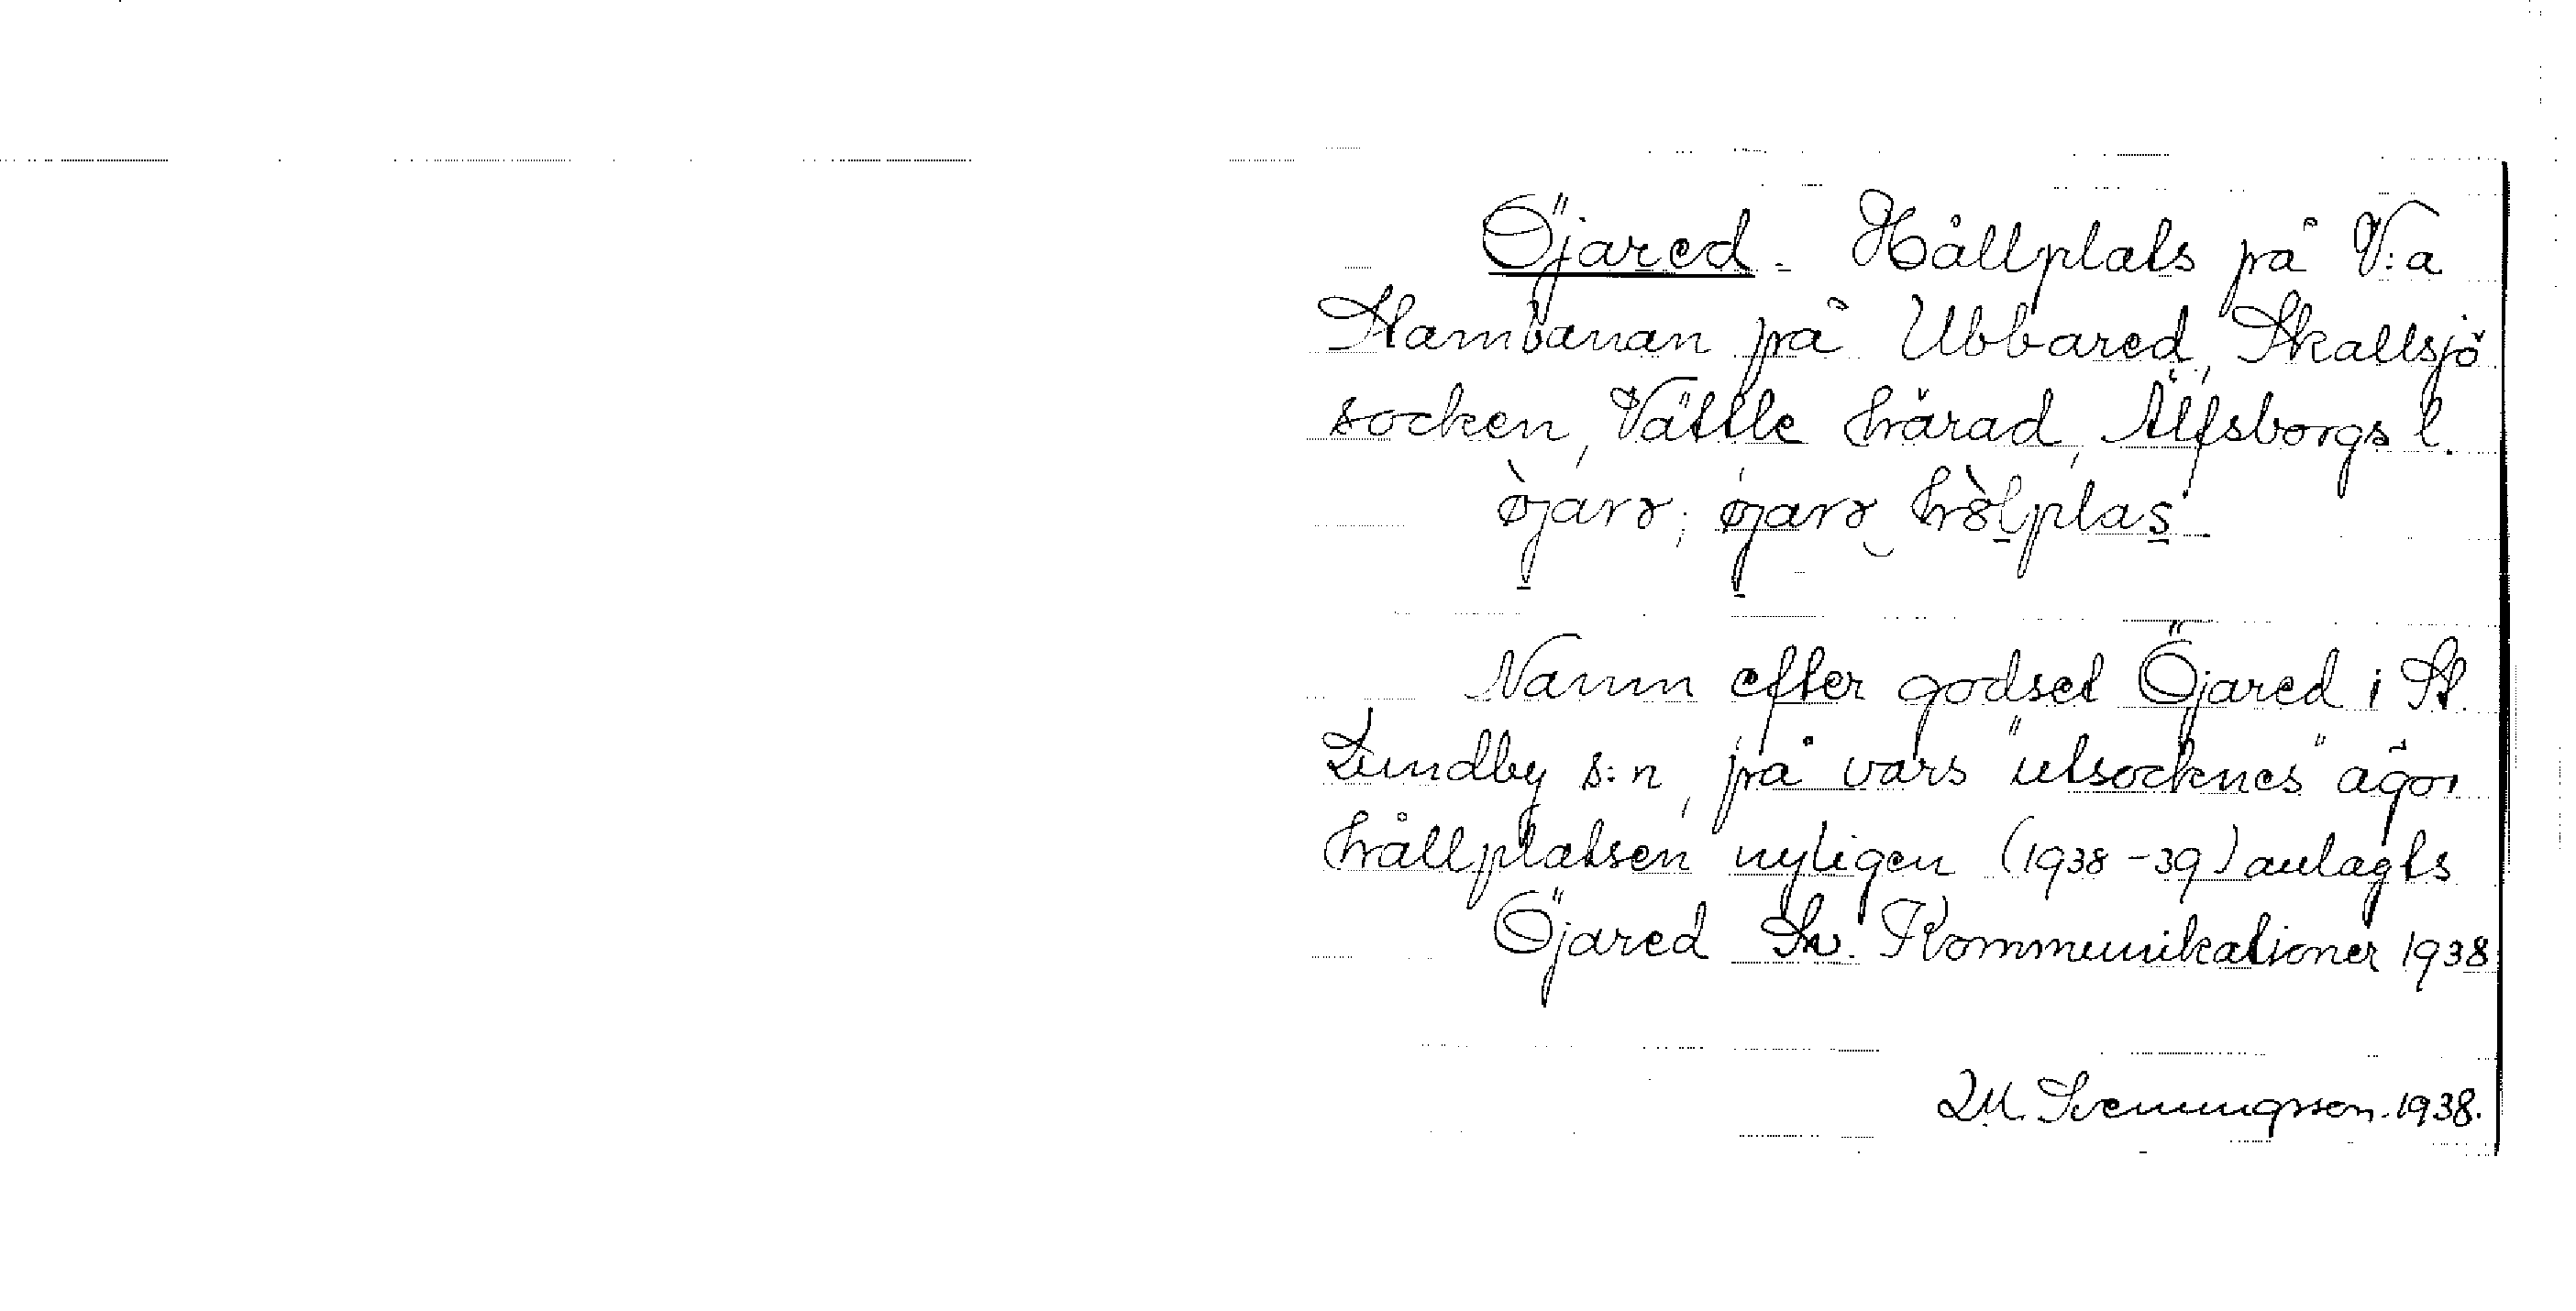 Öjared - Hållplats på V:a
Stambanan på Ubbared, Skallsjö
socken, Vättle härad, Älfsborgs l.
Namn efter godset Öjared i St.
Lundby s:n, på vars "utsocknes" ägor
hållplatsen nyligen (1938-39) anlagts
Öjared Sv. Kommunikationer 1938
Svenungsson. 1938.